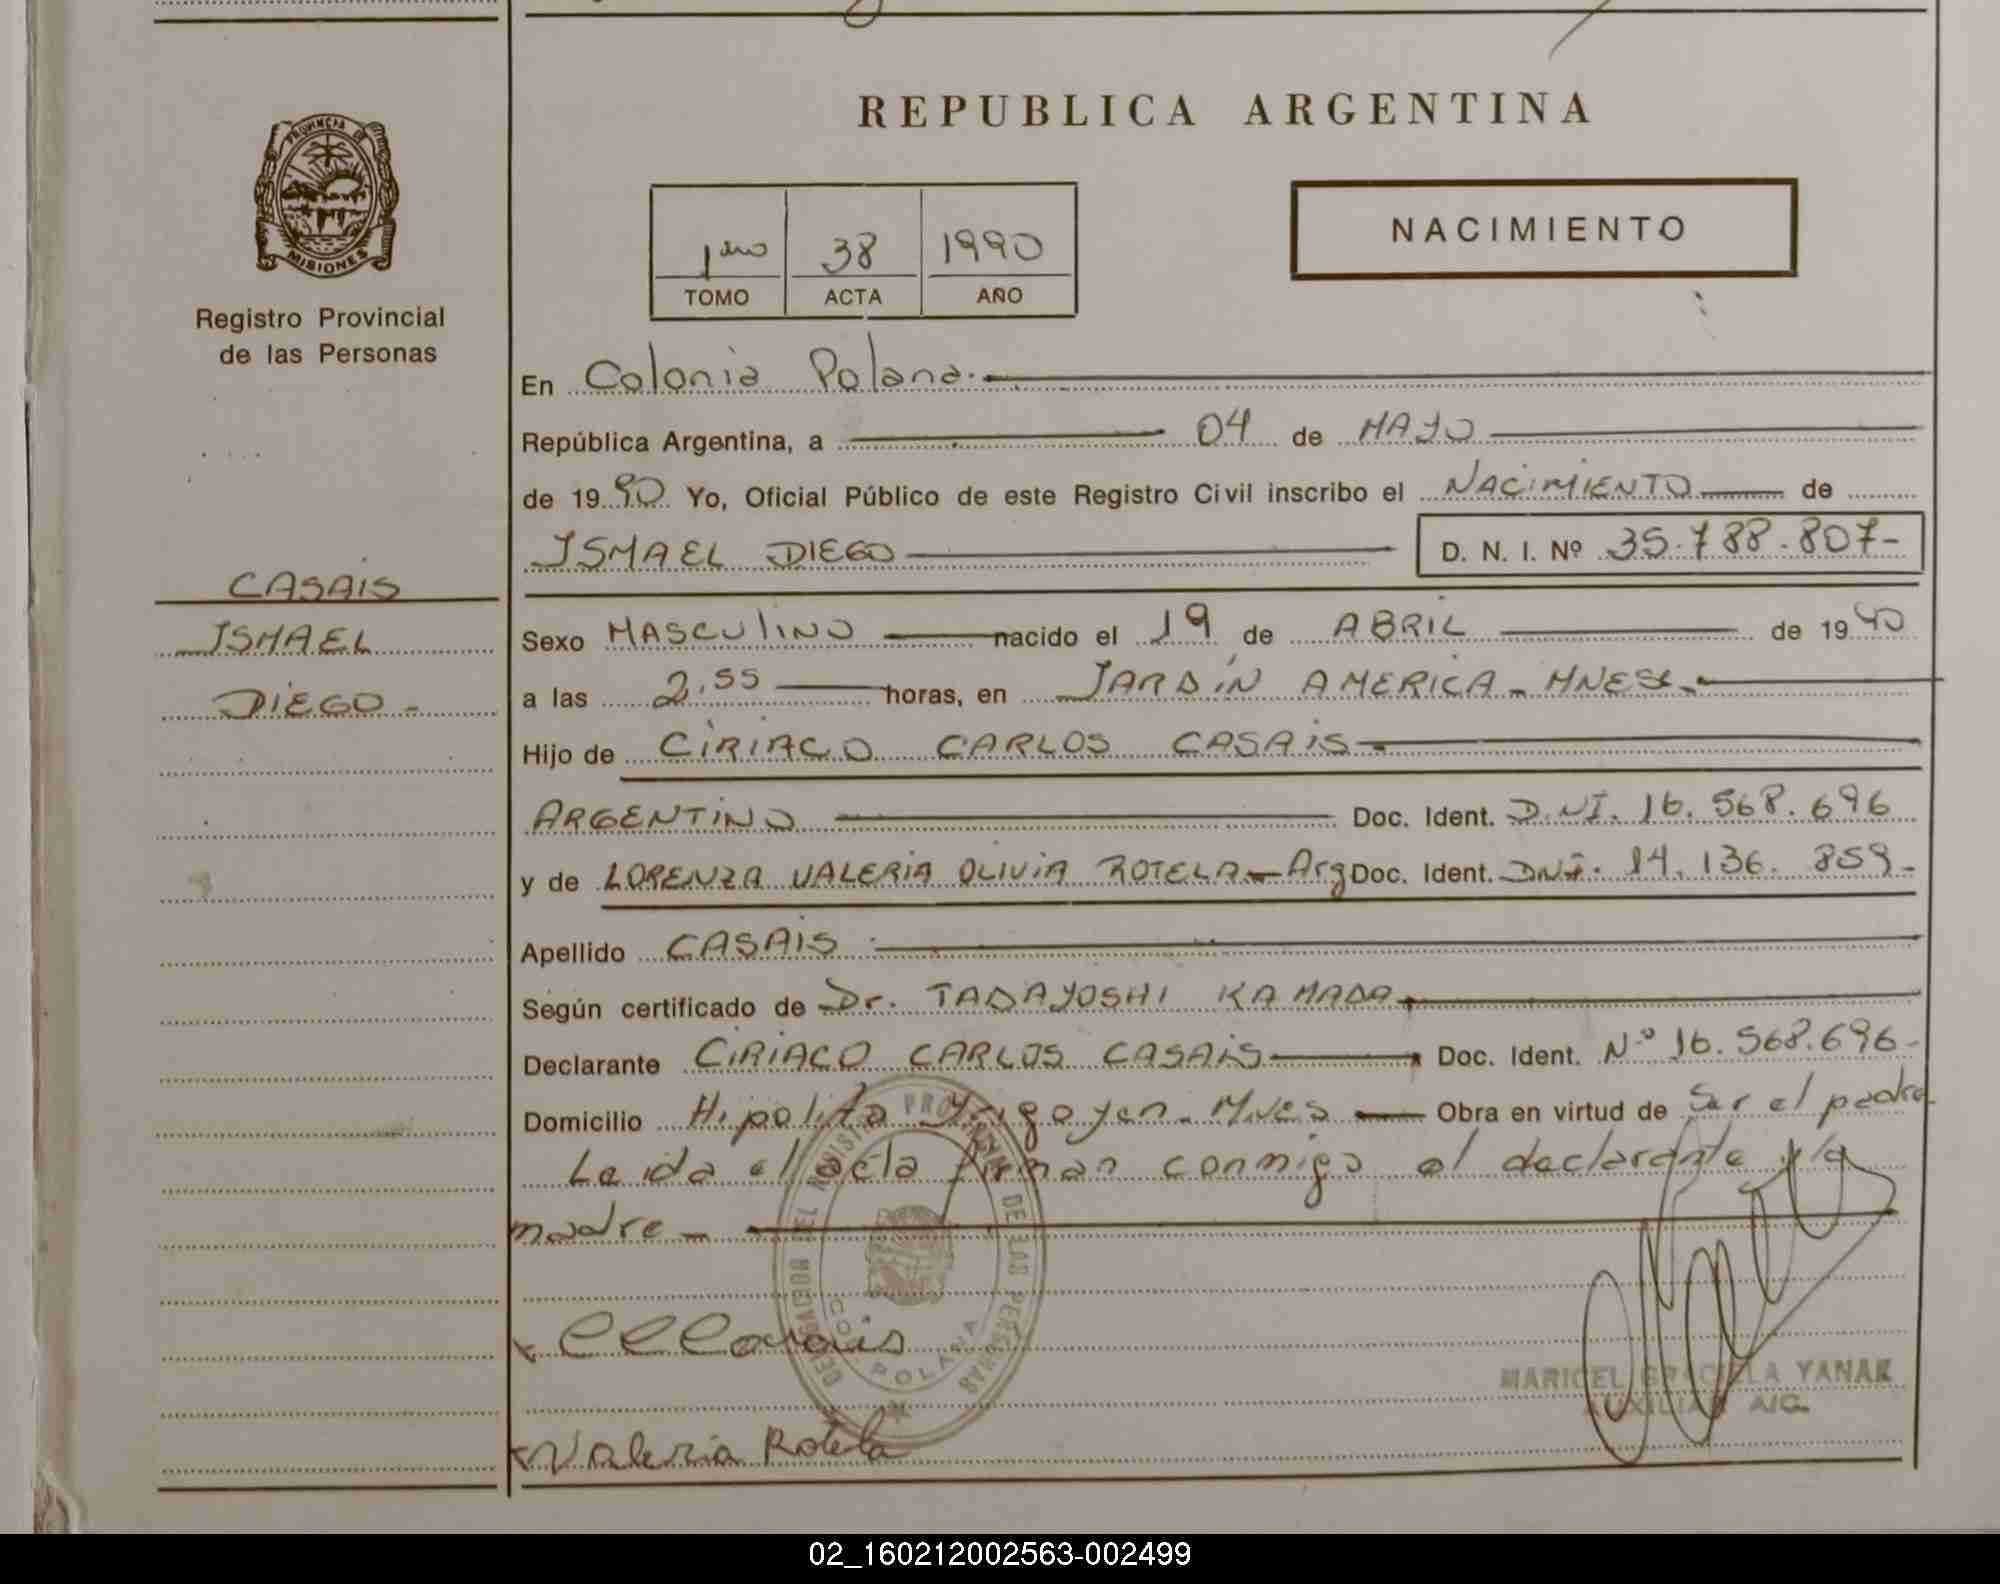 REPUBLICA ARGENTINA
PROVINCIA DE
MISIONES
Registro Provincial
de las Personas
CASAIS
ISMAEL
DIEGO -
1ero 38 1990
TOMO ACTA AÑO
NACIMIENTO
En Colonia Polana.
República Argentina, a 04 de MAYO
de 1990 Yo, Oficial Público de este Registro Civil inscribo el NACIMIENTO de
ISMAEL DIEGO D. N. I. Nº 35.788.807-
Sexo MASCULINO nacido el 19 de ABRIL de 1990
a las 2,55 horas, en JARDIN AMERICA - MNES.
Hijo de CIRIACO CARLOS CASAIS
ARGENTINO Doc. Ident. D.NI. 16.568.696
y de LORENZA VALERIA OLIVIA ROTELA - Arg Doc. Ident. DNI. 14.136.859-
Apellido CASAIS
Según certificado de Dr. TADAYOSHI KAMADA
Declarante CIRIACO CARLOS CASAIS Doc. Ident. Nº 16.568.696-
Domicilio Hipolito Yrigoyen - Mnes Obra en virtud de Ser el padre
Leida el acta firman conmigo el declarante y la
madre -
CCCasais
Valeria Rotela
DE LAS PERSONAS
POLANA
MARICEL GRACIELA YANAK
AUXILIAR A/C.
02_160212002563-002499